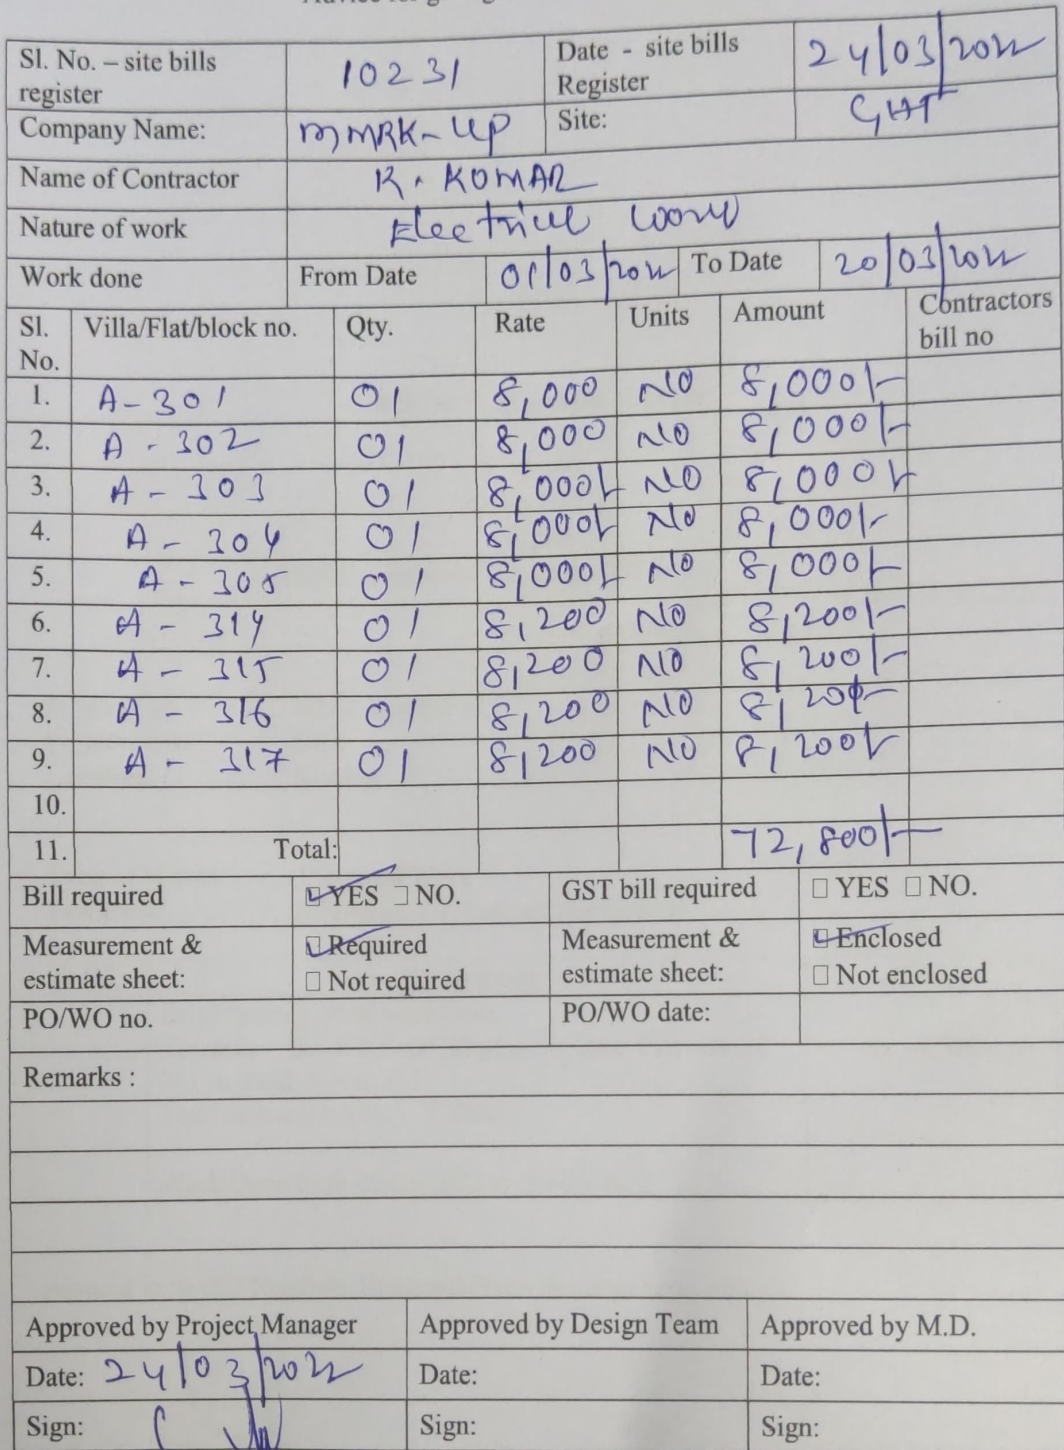 Sl. No. – site bills register 10231 Date - site bills Register 24/03/2022
Company Name: MMRK-UP Site: GHT
Name of Contractor R. KUMAR
Nature of work Electrical work
Work done From Date 01/03/2022 To Date 20/03/2022
Sl. No. Villa/Flat/block no. Qty. Rate Units Amount Contractors bill no
1. A-301 01 8,000 NO 8,000/-
2. A-302 01 8,000 NO 8,000/-
3. A-303 01 8,000/- NO 8,000/-
4. A-304 01 8,000/- NO 8,000/-
5. A-305 01 8,000/- NO 8,000/-
6. A-314 01 8,200 NO 8,200/-
7. A-315 01 8,200 NO 8,200/-
8. A-316 01 8,200 NO 8,200/-
9. A-317 01 8,200 NO 8,200/-
10.
11. Total: 72,800/-
Bill required YES NO. GST bill required YES NO.
Measurement & estimate sheet: Required Not required Measurement & estimate sheet: Enclosed Not enclosed
PO/WO no. PO/WO date:
Remarks :
Approved by Project Manager Approved by Design Team Approved by M.D.
Date: 24/03/2022 Date: Date:
Sign: Sign: Sign: